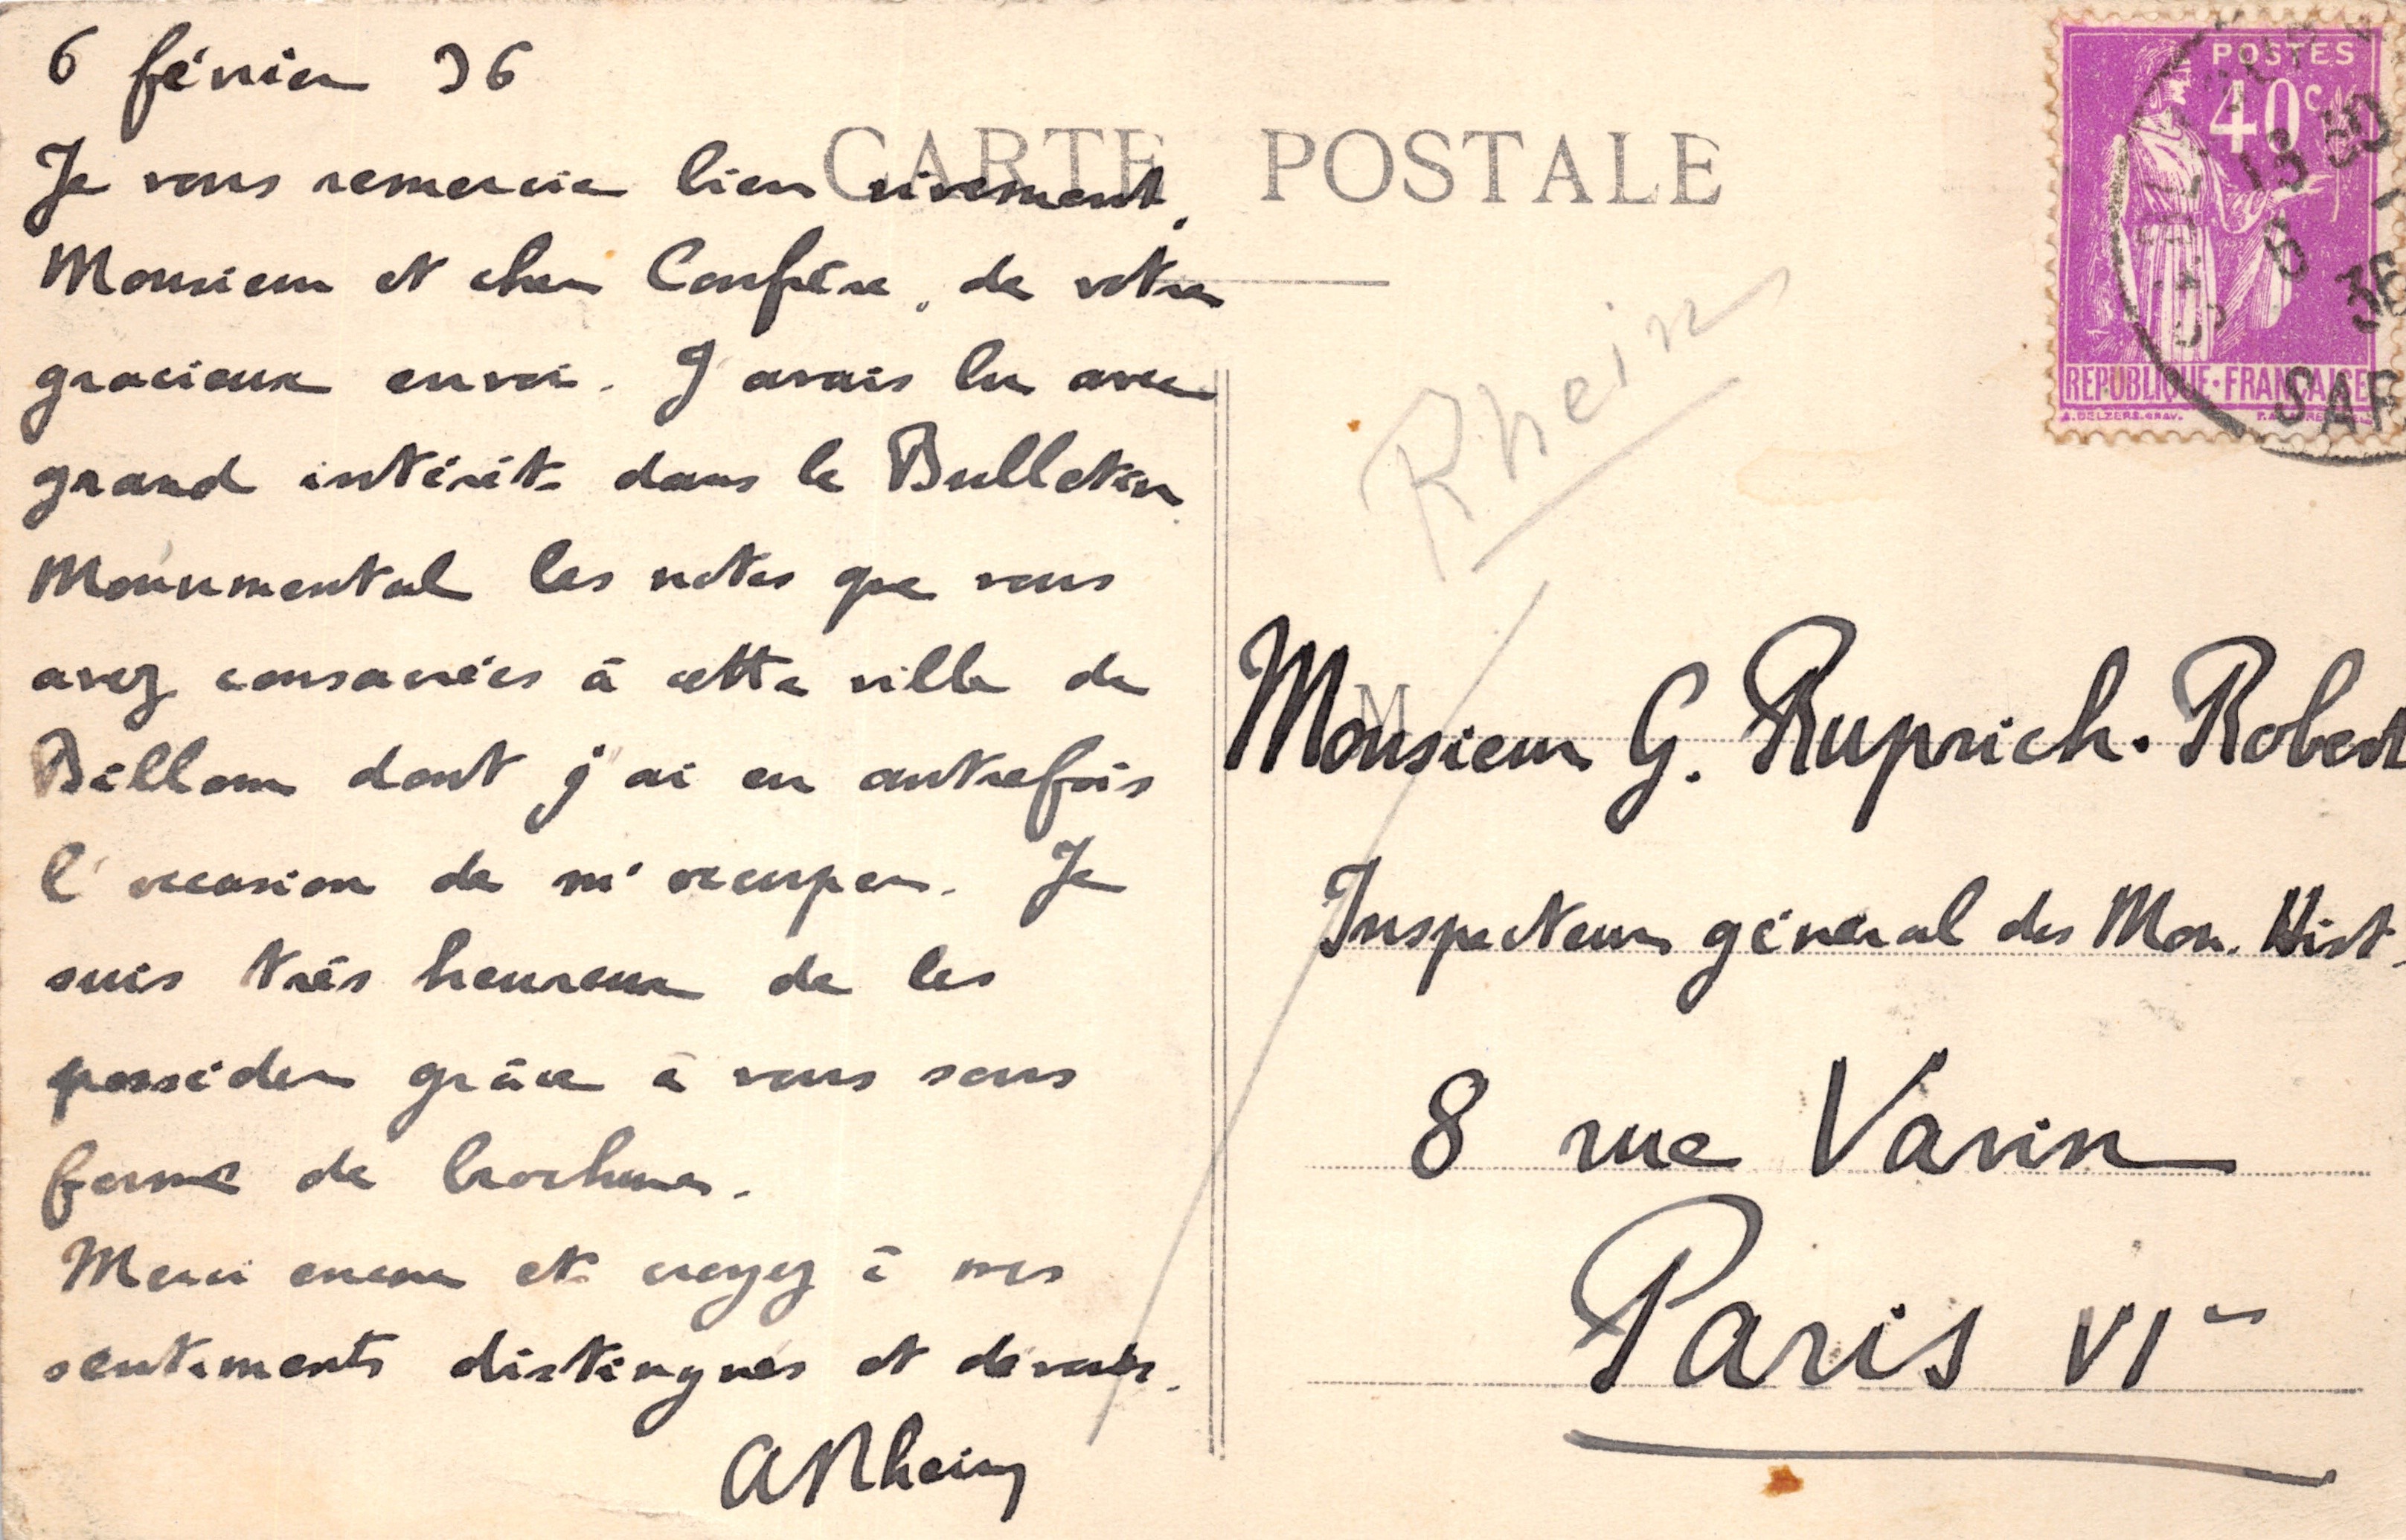 6 février 36
Je vous remercie bien vivement,
Monsieur et cher Confrère, de votre
gracieux envoi. J'avais lu avec
grand intérêt dans le Bulletin
Monumental les notes que vous
avez consacrées à cette ville de
Billom dont j'ai eu autrefois
l'occasion de m'occuper. Je
suis très heureux de les
posséder grâce à vous sous
forme de brochure.
Merci encore et croyez à mes
sentiments distingués et dévoués.
A Rhein
CARTE POSTALE
Rhein
POSTES
40c
REPUBLIQUE·FRANÇAISE
13 30
6
36
SAR
M
Monsieur G. Ruprich-Robert
Inspecteur général des Mon. Hist.
8 rue Varin
Paris VIe